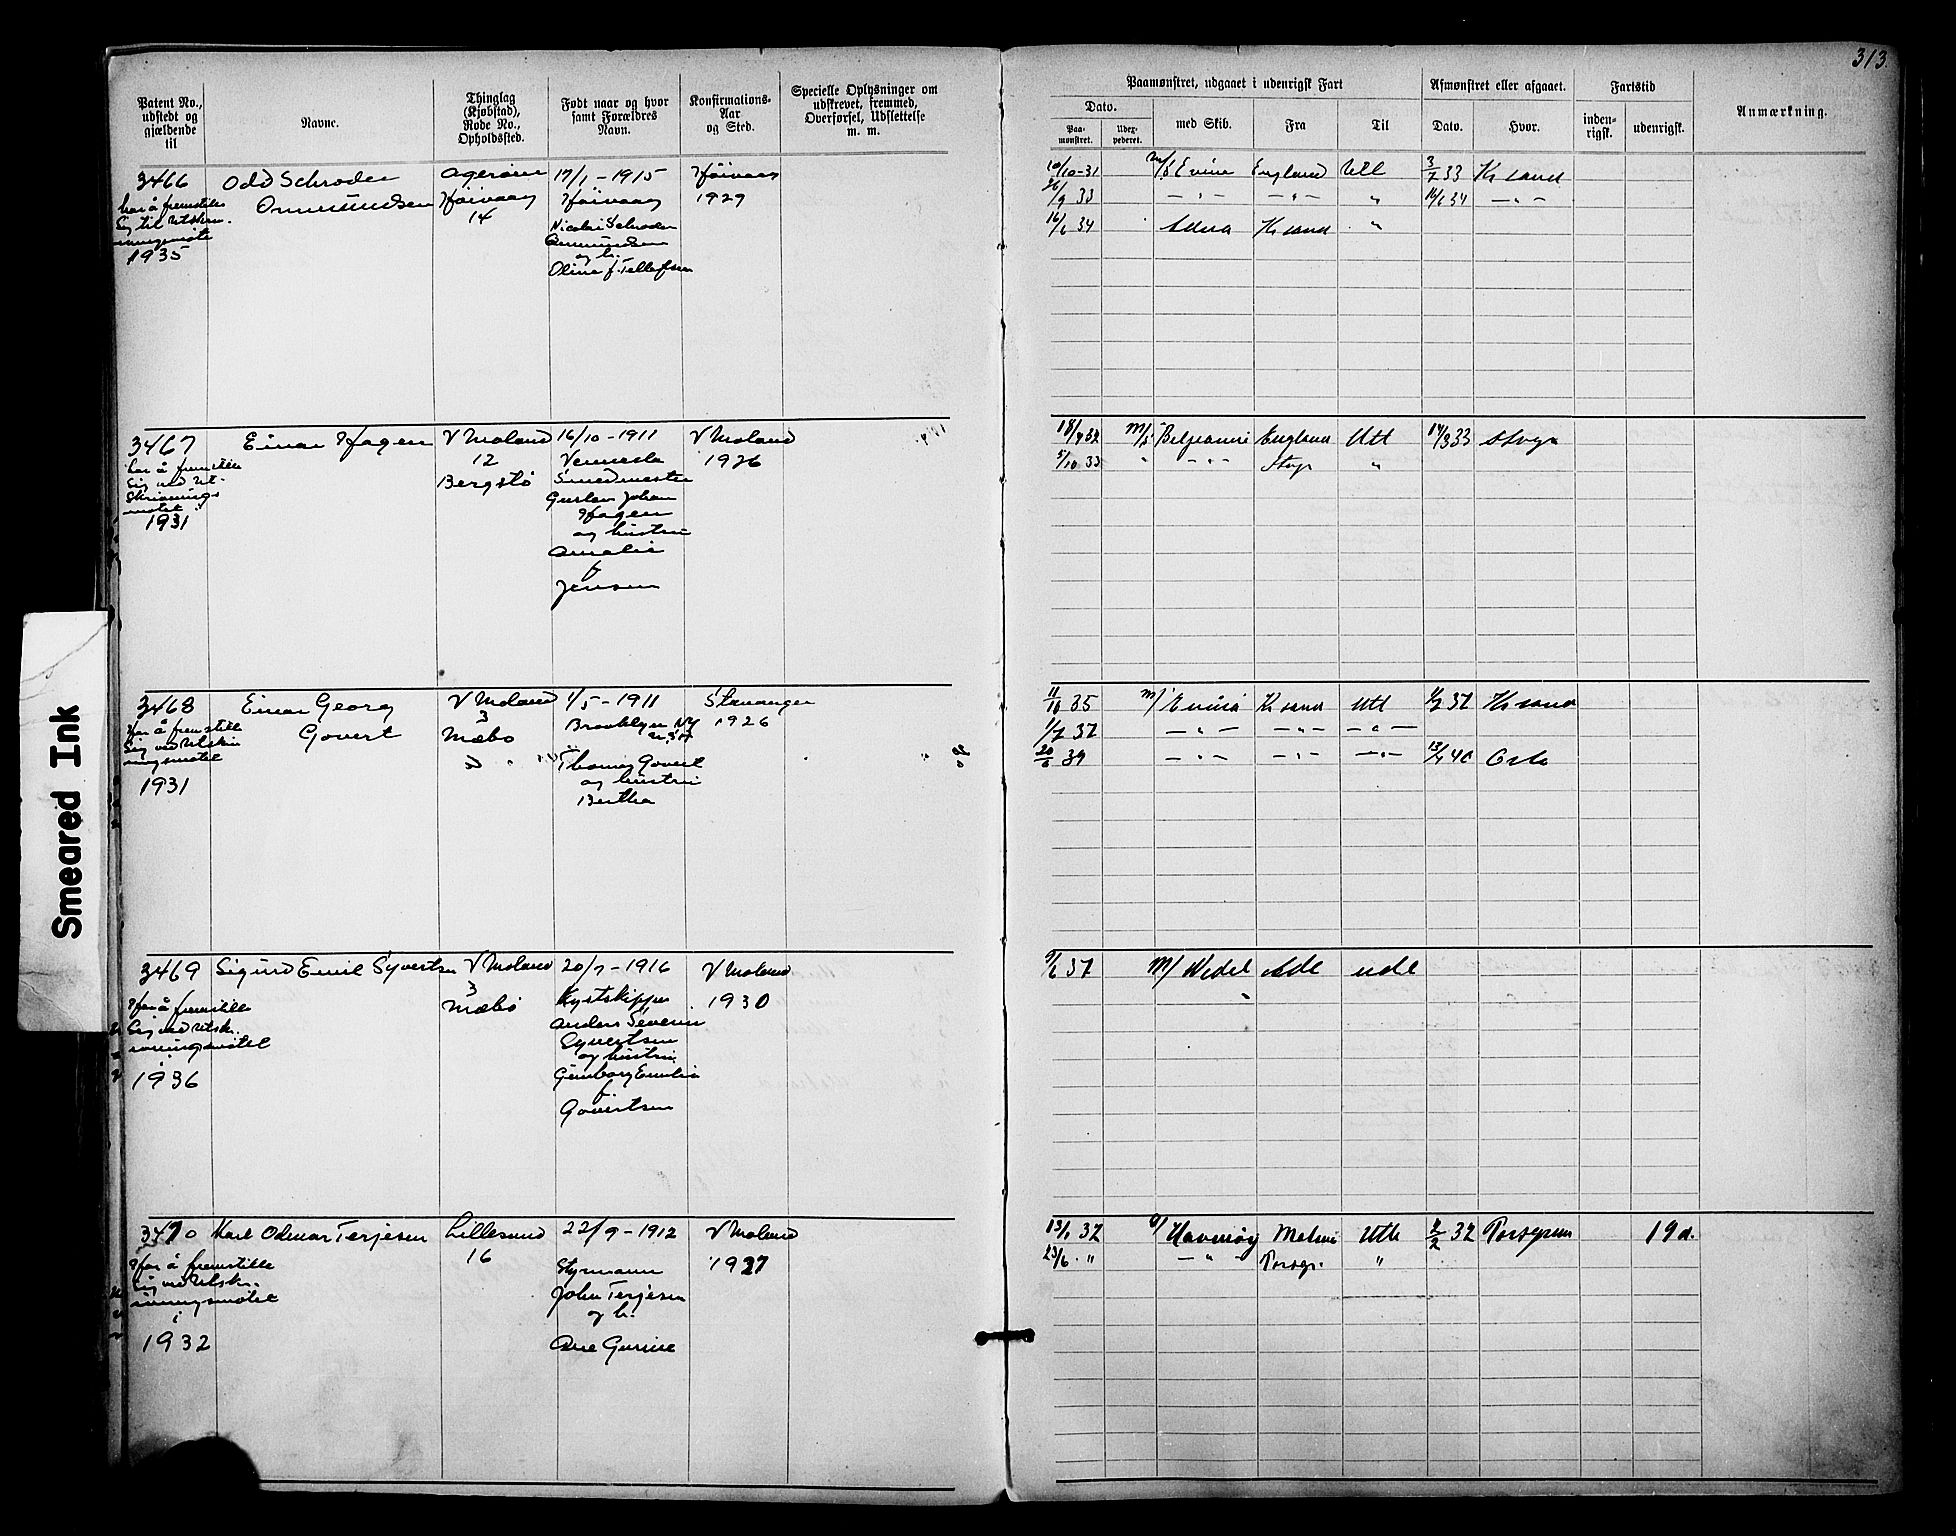 313.
Smeared Ink
Patent No., udstedt og gjældende til
Navne.
Thinglag (Kjøbstad), Rode No., Opholdssted.
Født naar og hvor samt Forældres Navn.
Konfirmations-Aar og Sted.
Specielle Oplysninger om udskrevet, fremmed, Overførsel, Udslettelse m. m.
Paamønstret, udgaaet i udenrigsk Fart
Dato.
Paa-mønstret.
Udex-pederet.
med Skib.
Fra
Til
Afmønstret eller afgaaet.
Dato.
Hvor.
Fartstid
inden-rigsk.
udenrigsk.
Anmærkning.
3466
har å fremstille
sig til utskriv-
ningsmøte
1935
Odd Schrøder
Ommundsen
Agerøen
Høivaag
14
17/1 - 1915
Høivaag
Nicolai Schrøder
Ommundsen
og h.
Oline f. Tellefsen
Høivaag
1929
10/10-31 m/s Evina England Utl 3/7 33 Kr sand
26/9 33 — " — — " — " 16/1 34 — " —
16/6 34 Kr sand "
3467
har å fremstille
sig ved ut-
skrivnings
møtet i
1931
Einar Hagen
V Moland
12
Bergstø
16/10 - 1911
Vennesla
Smedmester
Gustav Johan
Hagen
og hustru
Amalie
f
Jensen
V Moland
1926
18/7 32 m/s Beljeanne England Utl 14/3 33 Stvgr
5/10 33 " — " — Stvgr "
3468
Har å fremstille
sig ved utskriv
ningsmøtet
1931
Einar Georg
Govert
V Moland
3
Mæbø
1/5 - 1911
Brooklyn NY
U.S.A
Thomas Govert
og hustru
Bertha
Stavanger
1926
11/10 35 m/s Evina Kr sand Utl 1/2 37 Kr sand
1/7 37 — " — — " — — " —
20/6 39 — " — — " — — " — 13/4 40 Oslo
3469
Har å fremstille
sig ved utsk.
rivningsmøtet
i
1936
Sigurd Emil Syvertsen
V Moland
3
Mæbø
20/7 - 1916
Kystskipper
Anders Severin
Syvertsen
og hustru
Gunborg Emilie
f
Govertsen
V Moland
1930
9/6 37 m/ Wedel utl
3470
Har å fremstille
sig ved utsk.
rivningsmøtet
i
1932
Karl Odmar Terjesen
Lillesand
16
22/9 - 1912
Styrmann
John Terjesen
og h.
Ane Gurine
V Moland
1927
13/1 32 Havnøy Malmø Utl 2/2 32 Porsgrunn 19 d.
23/6 " — " — Porsgr. "